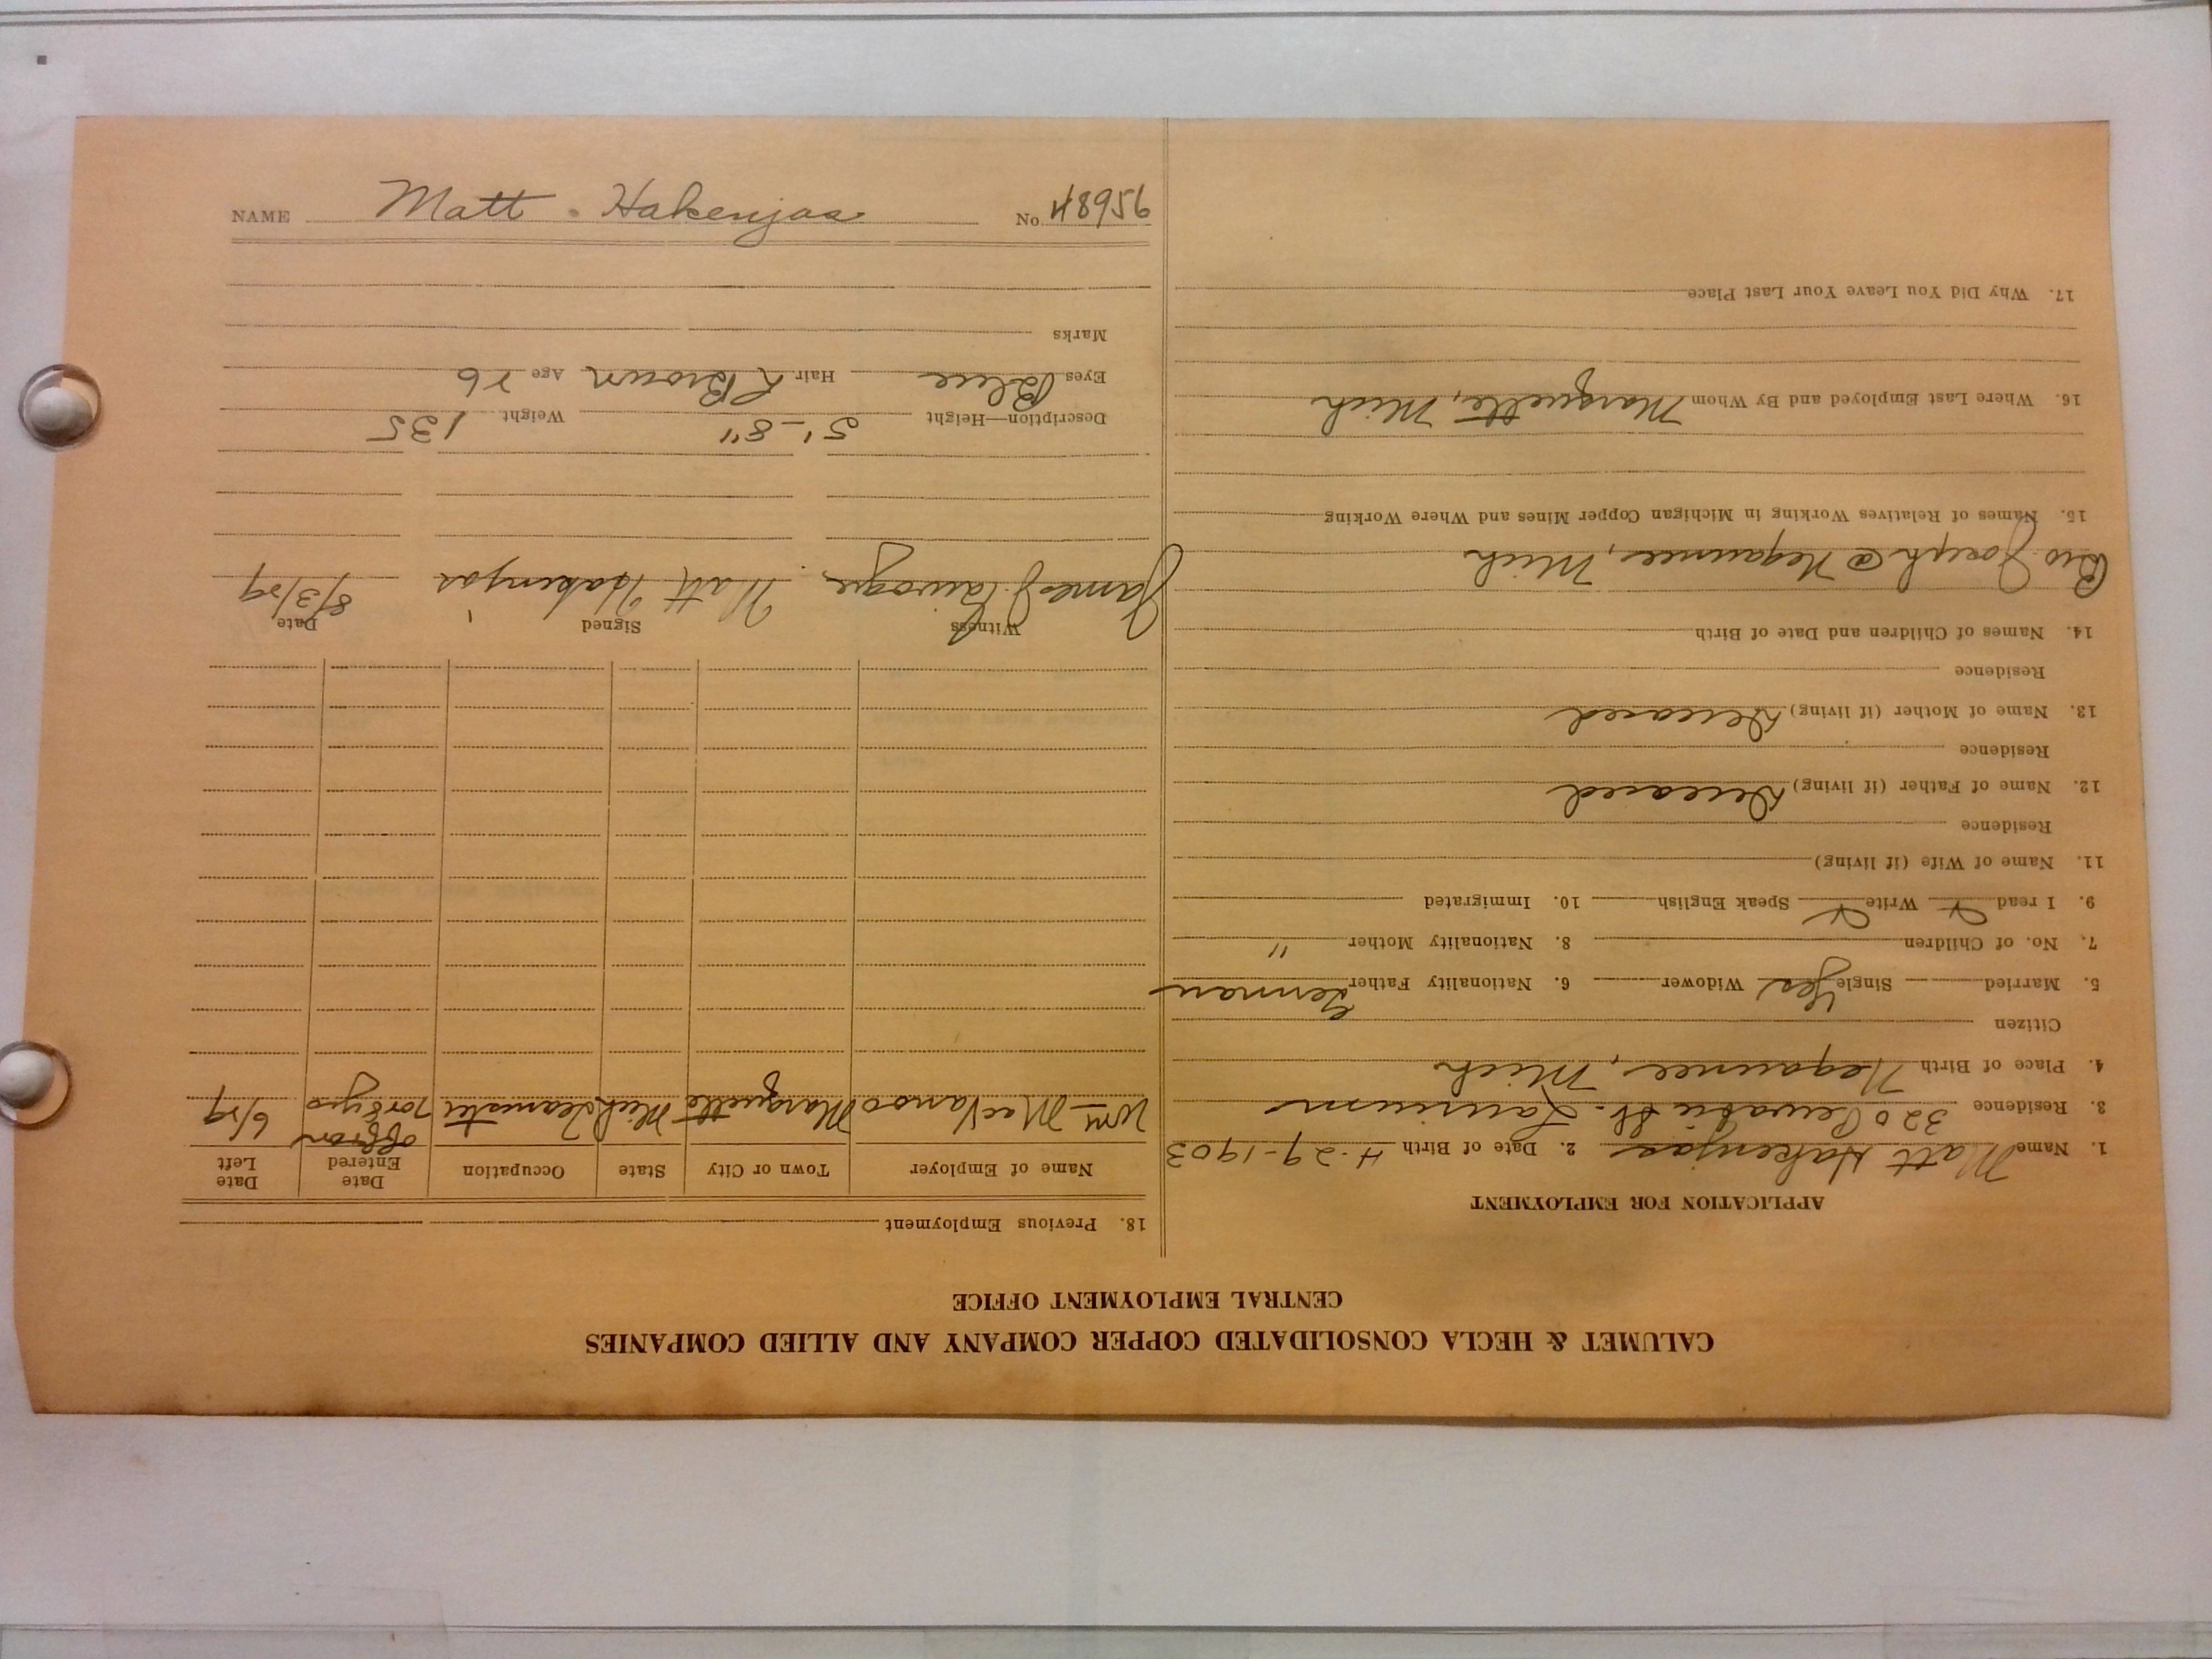 CALUMET & HECLA CONSOLIDATED COPPER COMPANY AND ALLIED COMPANIES
CENTRAL EMPLOYMENT OFFICE
APPLICATION FOR EMPLOYMENT
1. Name Matt Hakenjos 2. Date of Birth 4-29-1903
3. Residence 320 Pewabic St. Laurium
4. Place of Birth Negaunee, Mich
Citizen
5. Married Single Yes Widower 6. Nationality Father German
7. No. of Children 8. Nationality Mother "
9. I read Write Speak English 10. Immigrated
11. Name of Wife (if living)
Residence
12. Name of Father (if living) Deceased
Residence
13. Name of Mother (if living) Deceased
Residence
14. Names of Children and Date of Birth
Bro Joseph @ Negaunee, Mich
15. Names of Relatives Working in Michigan Copper Mines and Where Working
16. Where Last Employed and By Whom Marquette, Mich
17. Why Did You Leave Your Last Place
18. Previous Employment
Name of Employer Town or City State Occupation Date Entered Date Left
off & on
Wm Marquette Mich Teamster 7 or 8 yrs 6/29
Witness Signed Date
James Matt Hakenjos 8/3/29
Description—Height 5'-8" Weight 135
Eyes Blue Hair Brown Age 26
Marks
NAME Matt Hakenjos No. 48956